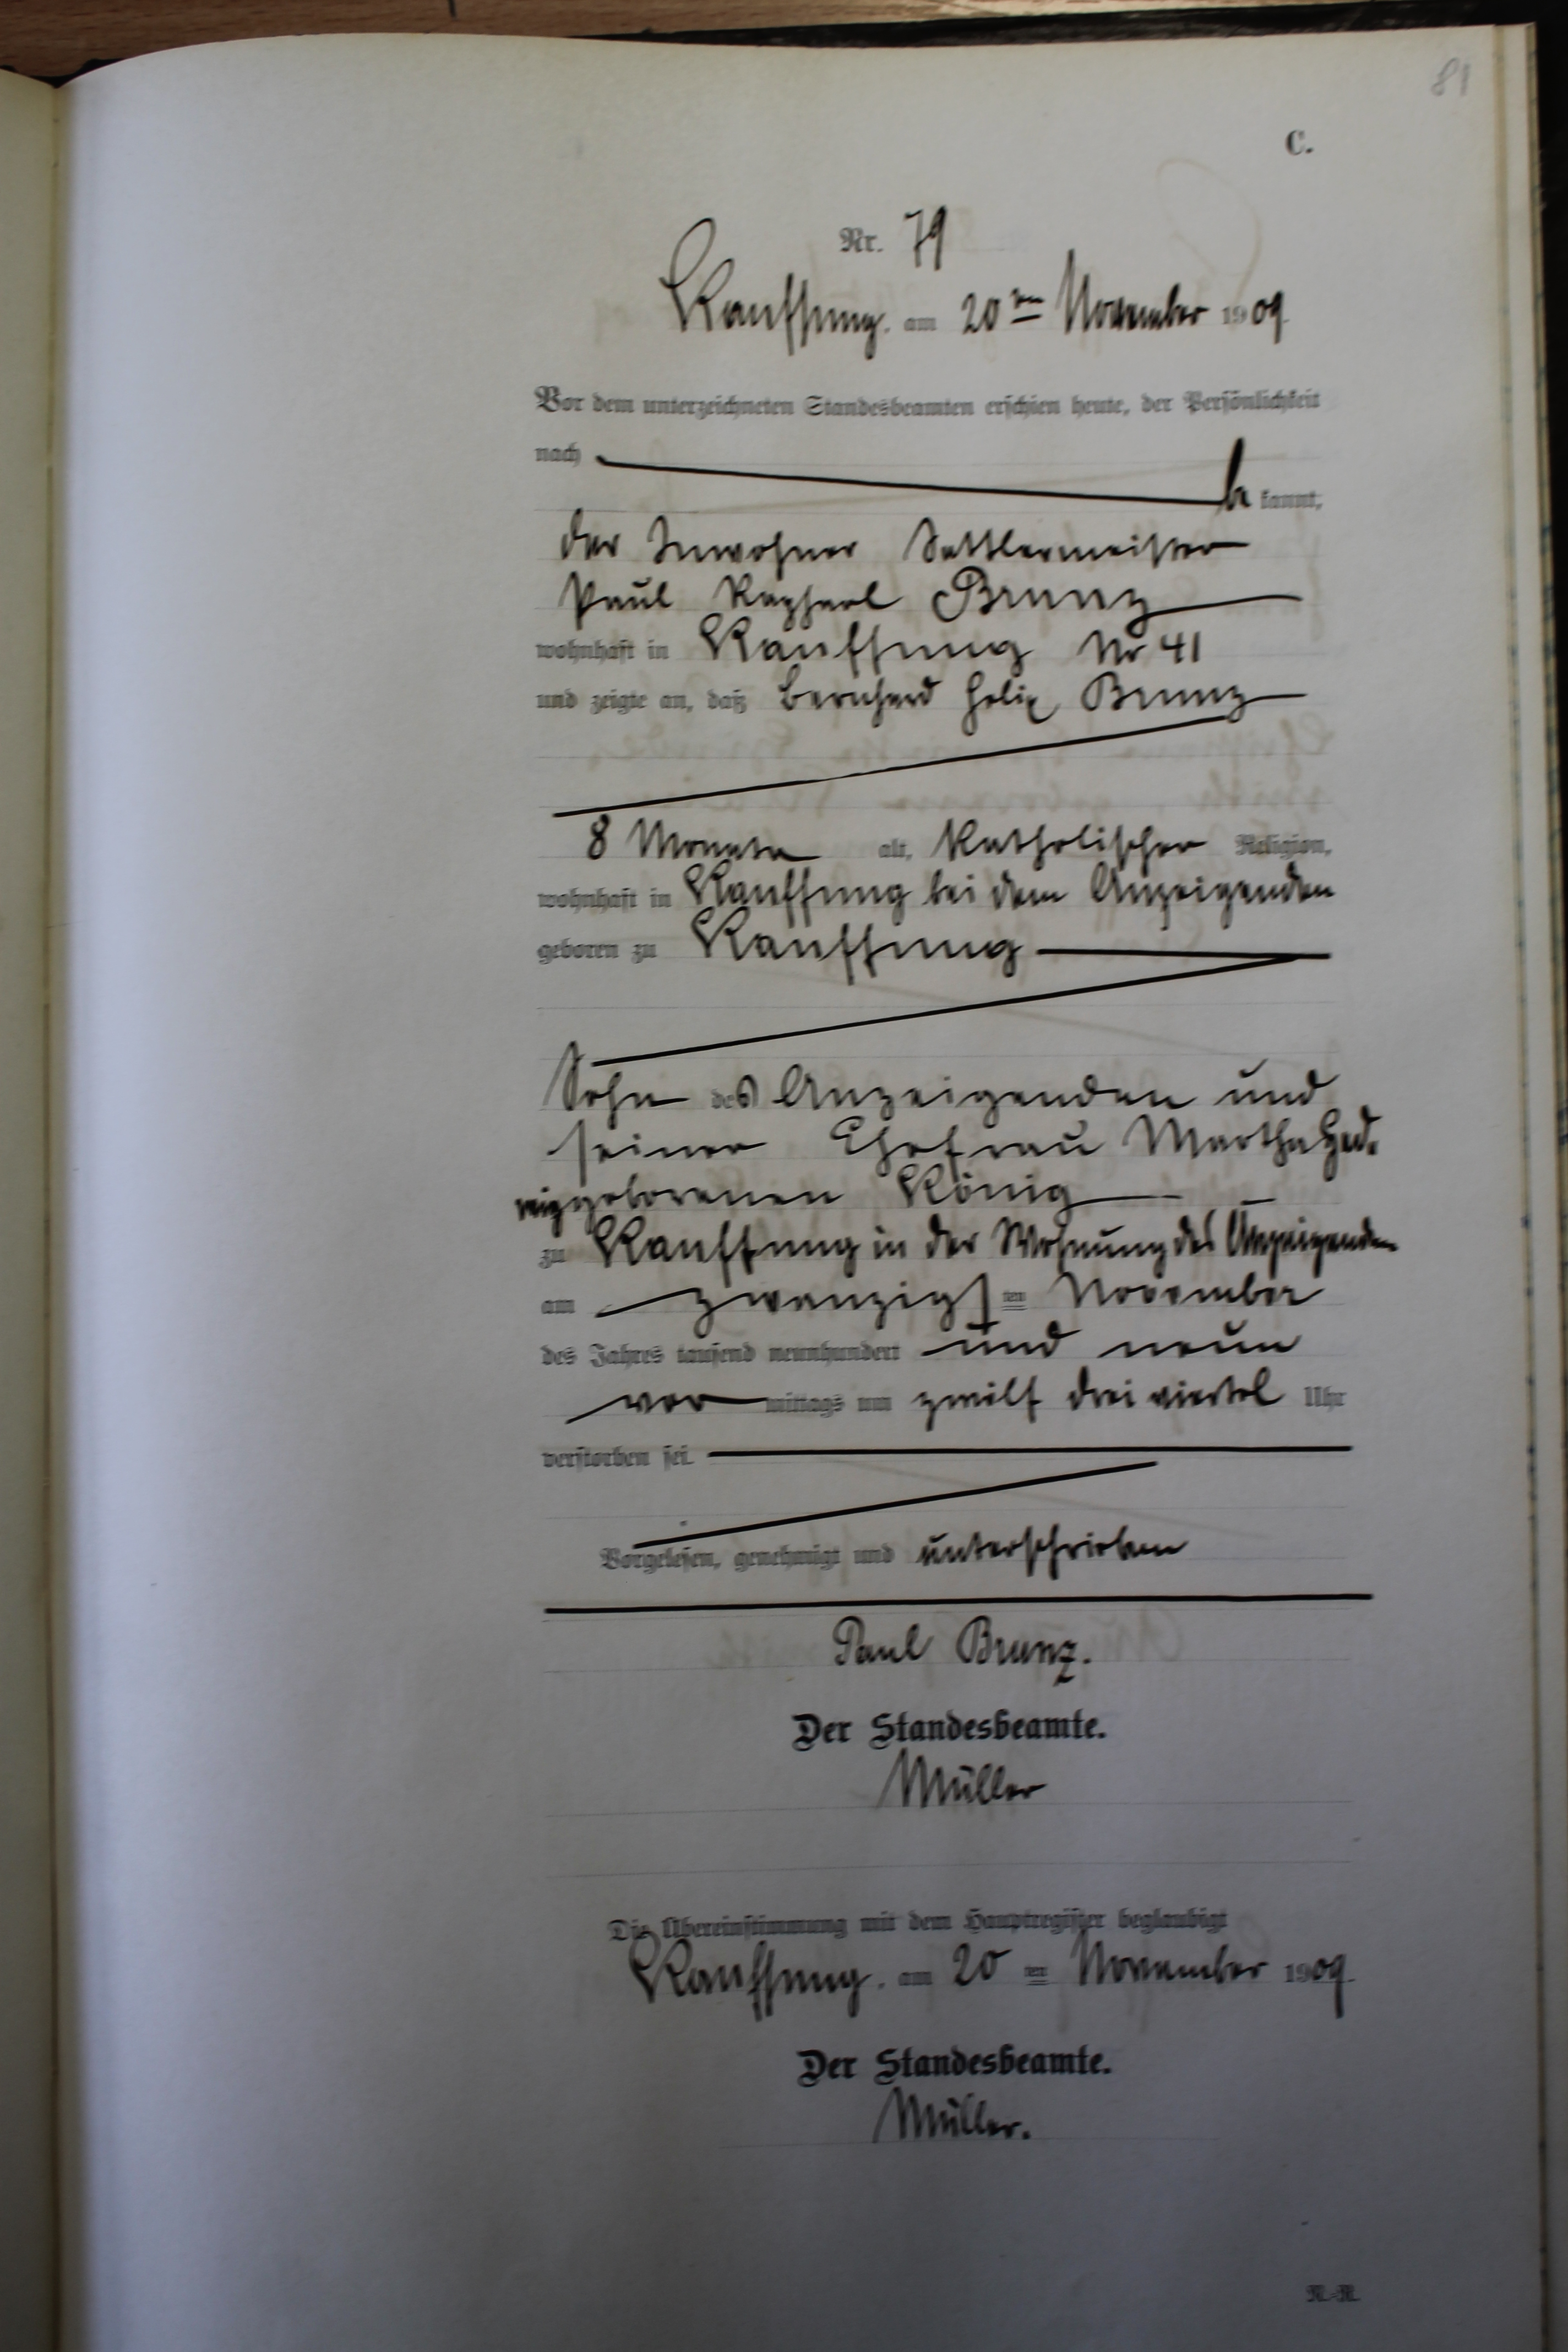 81
C.
Nr. 79
Kauffung. am 20ten November 1909.
Vor dem unterzeichneten Standesbeamten erschien heute, der Persönlichkeit
nach
be kannt,
der Inwohner Sattlermeister
Paul Raphael Brunz
wohnhaft in Kauffung Nr 41
und zeigte an, daß Bernhard Felix Brunz
8 Monate alt, katholischer Religion,
wohnhaft in Kauffung bei dem Anzeigenden
geboren zu Kauffung
Sohn des Anzeigenden und
seiner Ehefrau Martha Hed-
wig geborenen König
zu Kauffung in der Wohnung des Anzeigenden
am zwanzigsten November
des Jahres tausend neunhundert und neun
vor mittags um zwölf drei viertel Uhr
verstorben sei.
Vorgelesen, genehmigt und unterschrieben
Paul Brunz.
Der Standesbeamte.
Müller
Die Übereinstimmung mit dem Hauptregister beglaubigt
Kauffung. am 20 ten November 1909.
Der Standesbeamte.
Müller.